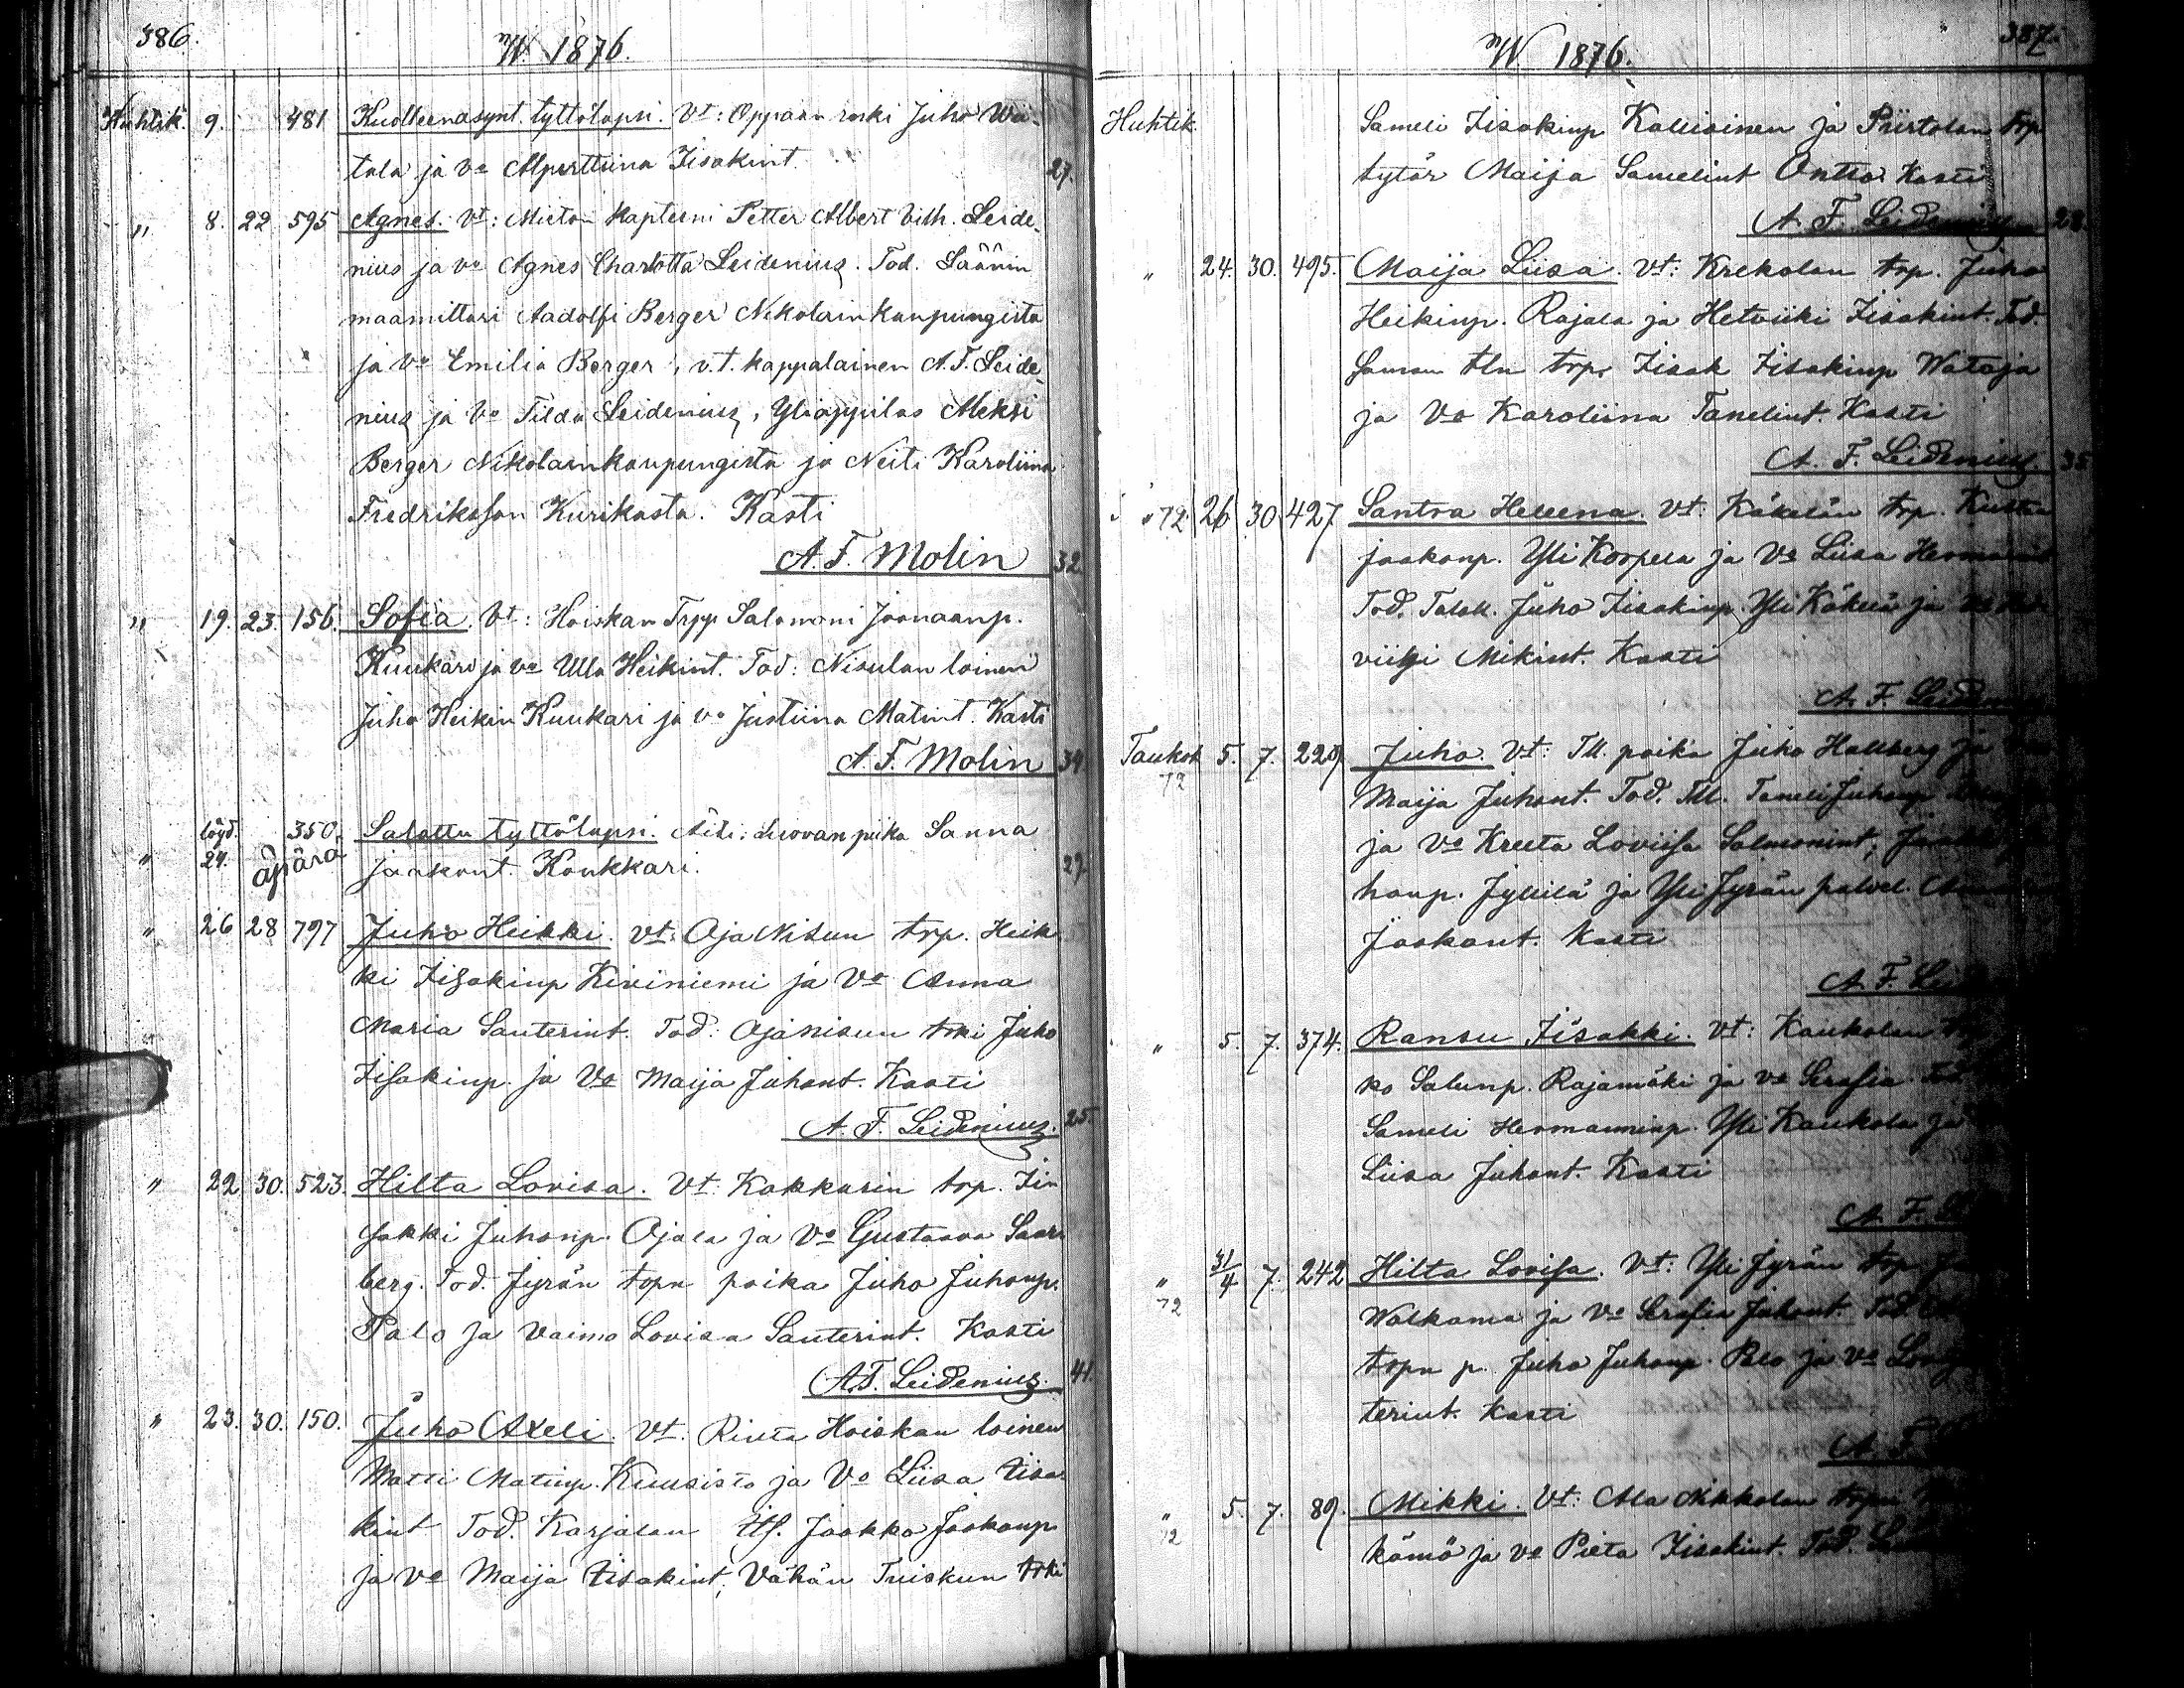 386.
W. 1876.
Huhtik. 9. 481 Kuolleenasynt. tyttölapsi. Vt: Oppaan renki Juho Wii-
tala ja Vo Alperttiina Iisakint. 27.
" 8. 22 595 Agnes. Vt: Mieto- Kapteeni Petter Albert Vilh. Leide-
nius ja vo Agnes Charlotta Leidenius. Tod. Läänin
maamittari Aadolfi Berger Nikolainkaupungista
ja vo Emilia Berger, v.t. kappalainen A. F. Leide-
nius ja Vo Tilda Leidenius, Ylioppilas Aleksi
Berger Nikolainkaupungista ja Neiti Karoliina
Fredriksson Kurikasta. Kasti
A. F. Molin 32
" 19. 23. 156. Sofia. Vt: Hoiskan Trpp Salomoni Joonaanp.
Kuukari ja vo Ulla Heikint. Tod: Nisulan loinen
Juho Heikin Kuukari ja vo Justiina Matint. Kasti
A. F. Molin 34
" löyd. 24. äpärä 350. Salattu tyttölapsi. Äiti: Luovan piika Sanna
Jaakont. Koukkari. 27.
" 26 28 797 Juho Heikki. Vt: OjaNisun trp. Heik
ki Iisakinp Kiviniemi ja Vo Anna
Maria Santerint. Tod: Ojanisun trki Juho
Iisakinp. ja Vo Maija Juhont. Kasti
A. F. Leidenius. 25.
" 22. 30. 523. Hilta Lovisa. Vt: Kakkurin trp. Iin
sakki Juhonp. Ojala ja Vo Gustaava Saar
berg. Tod. Jyrän topn poika Juho Juhonp.
Palo ja vaimo Lovisa Santerint. Kasti
A. F. Leidenius. 41.
" 23. 30. 150. Juho Akseli. Vt: Rinta Hoiskan loinen
Matti Matinp. Kuusisto ja Vo Liisa Iisa
kint Tod. Karjalan Itf. Jaakko Jaakonp
ja vo Maija Iisakint, Vähän Tuiskun trki
387.
W 1876.
Huhtik. Sameli Iisakinp Kallioinen ja Piirtolan trp
tytär Maija Samelint Ontto. Kasti
A. F. Leidenius 28.
" 24. 30. 495. Maija Liisa. Vt: Krekolan trp. Juho
Heikinp. Rajala ja Hetviiki Iisakint. Tod.
Saman tln trp. Iisak Iisakinp Wataja
ja Vo Karoliina Tanelint. Kasti
A. F. Leidenius. 35
" 72. 26 30 427 Santra Helena. Vt: Käkelän trp. Kustaa
Jaakonp. Yli Korpela ja Vo Liisa
Tod. Taloll. Juho Iisakinp. Yli Käkelä ja Vo
viiki Mikint. Kasti
A. F.
Toukok 72 5. 7. 229. Juho. Vt: Tll. poika Juho Hallberg ja
Maija Juhont. Tod. Tll. Taneli Juhonp
ja Vo Kreeta Loviisa Salomonint,
honp. Jyllilä ja Yli Jyrän palvel.
Jaakont. Kasti
A. F.
" 5. 7. 374. Ransu Iisakki. Vt: Kaukolan
ko Salunp. Rajamäki ja vo Serafia
Sameli Hermanninp. Yli Kaukola ja
Liisa Juhont. Kasti
A. F.
" 72 31/4 7. 242 Hilta Lovisa. Vt: Yli Jyrän trp
Walkama ja Vo Serafia Juhont. Tod
trpn p. Juho Juhonp. Palo ja vo
terint. Kasti
A. F.
" 72 5. 7. 89. Mikki. Vt: Ala Nikkolan trpn
kämö ja vo Pieta Iisakint. Tod.